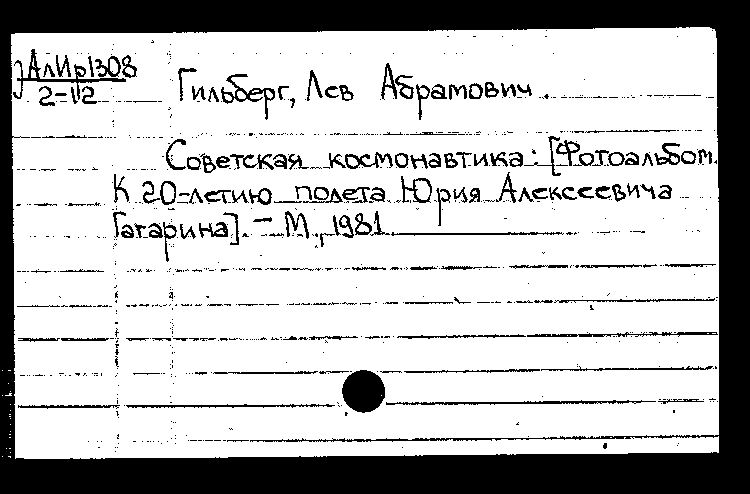 АлИр1308
2-112
Гильберг, Лев Абрамович.
Советская космонавтика: [Фотоальбом.
К 20-летию полета Юрия Алексеевича
Гагарина]. — М., 1981